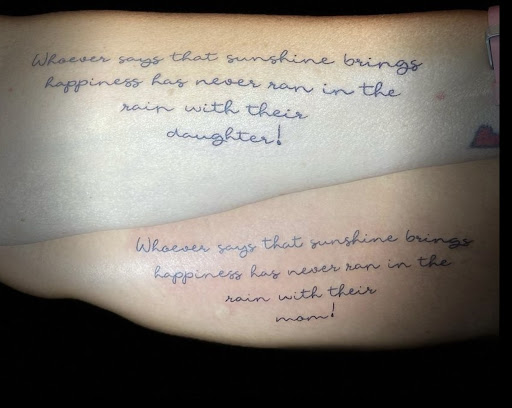 Whoever says that sunshine brings
happiness has never ran in the
rain with their
daughter!
Whoever says that sunshine brings
happiness has never ran in the
rain with their
mom!